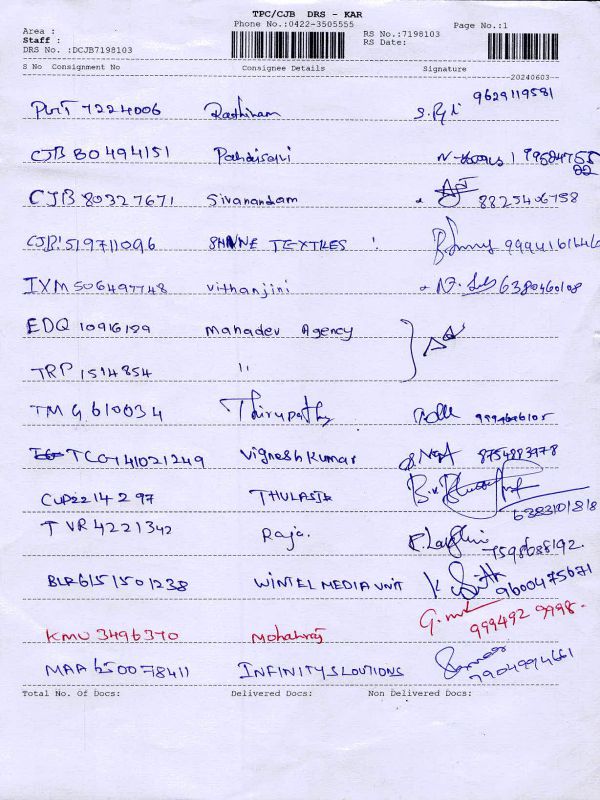 TPC/CJB DRS - KAR
Phone No.:0422-3505555 Page No.:1
Area :
Staff : RS No.:7198103
DRS No. :DCJB7198103 RS Date:
S No Consignment No Consignee Details Signature
20240603
9629119581
7224006 Rathinam
CJB 80494151
CJB 80327671 Sivanandam 8825406758
CJB 519711096 SHINE TEXTILES
IXM 506497748 Vithanjini 6380460108
EDQ 10916189 Mahadev Agency
TRP 1514854 "
TMG 610634 Thirupathy
TCG141021249 Vignesh Kumar 8754883978
CUP2214297 THULASIA 6383101818
TVR 4221342 Raja. 7598688192.
BLR6151501238 WINTEL MEDIA UNIT 9600475671
KMU 3496370 Mohanraj 999492 9998.
MAA 650078411 INFINITY SLOUTIONS 7904994661
Total No. Of Docs: Delivered Docs: Non Delivered Docs: